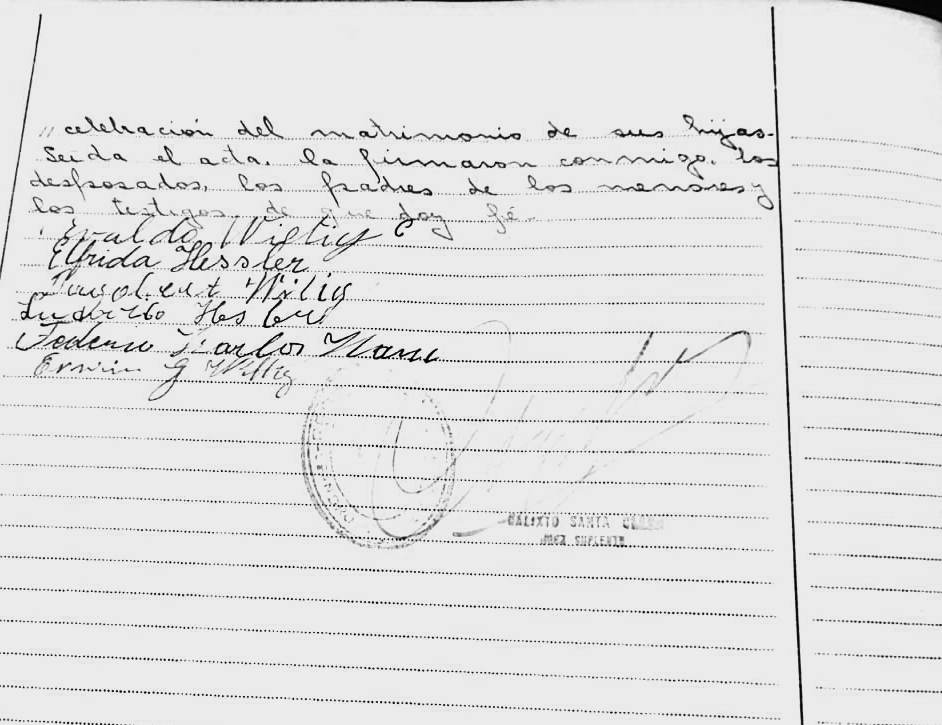 celebracion del matrimonio de sus hijas.-
Leida el acta, la firmaron conmigo, los
desposados, los padres de los menores y
los testigos, de que doy fé.-
Evaldo Willig
Elfrida Hessler
Willig
Federico Karlos
Erwin G Willig
CALIXTO SANTA
JUEZ SUPLENTE